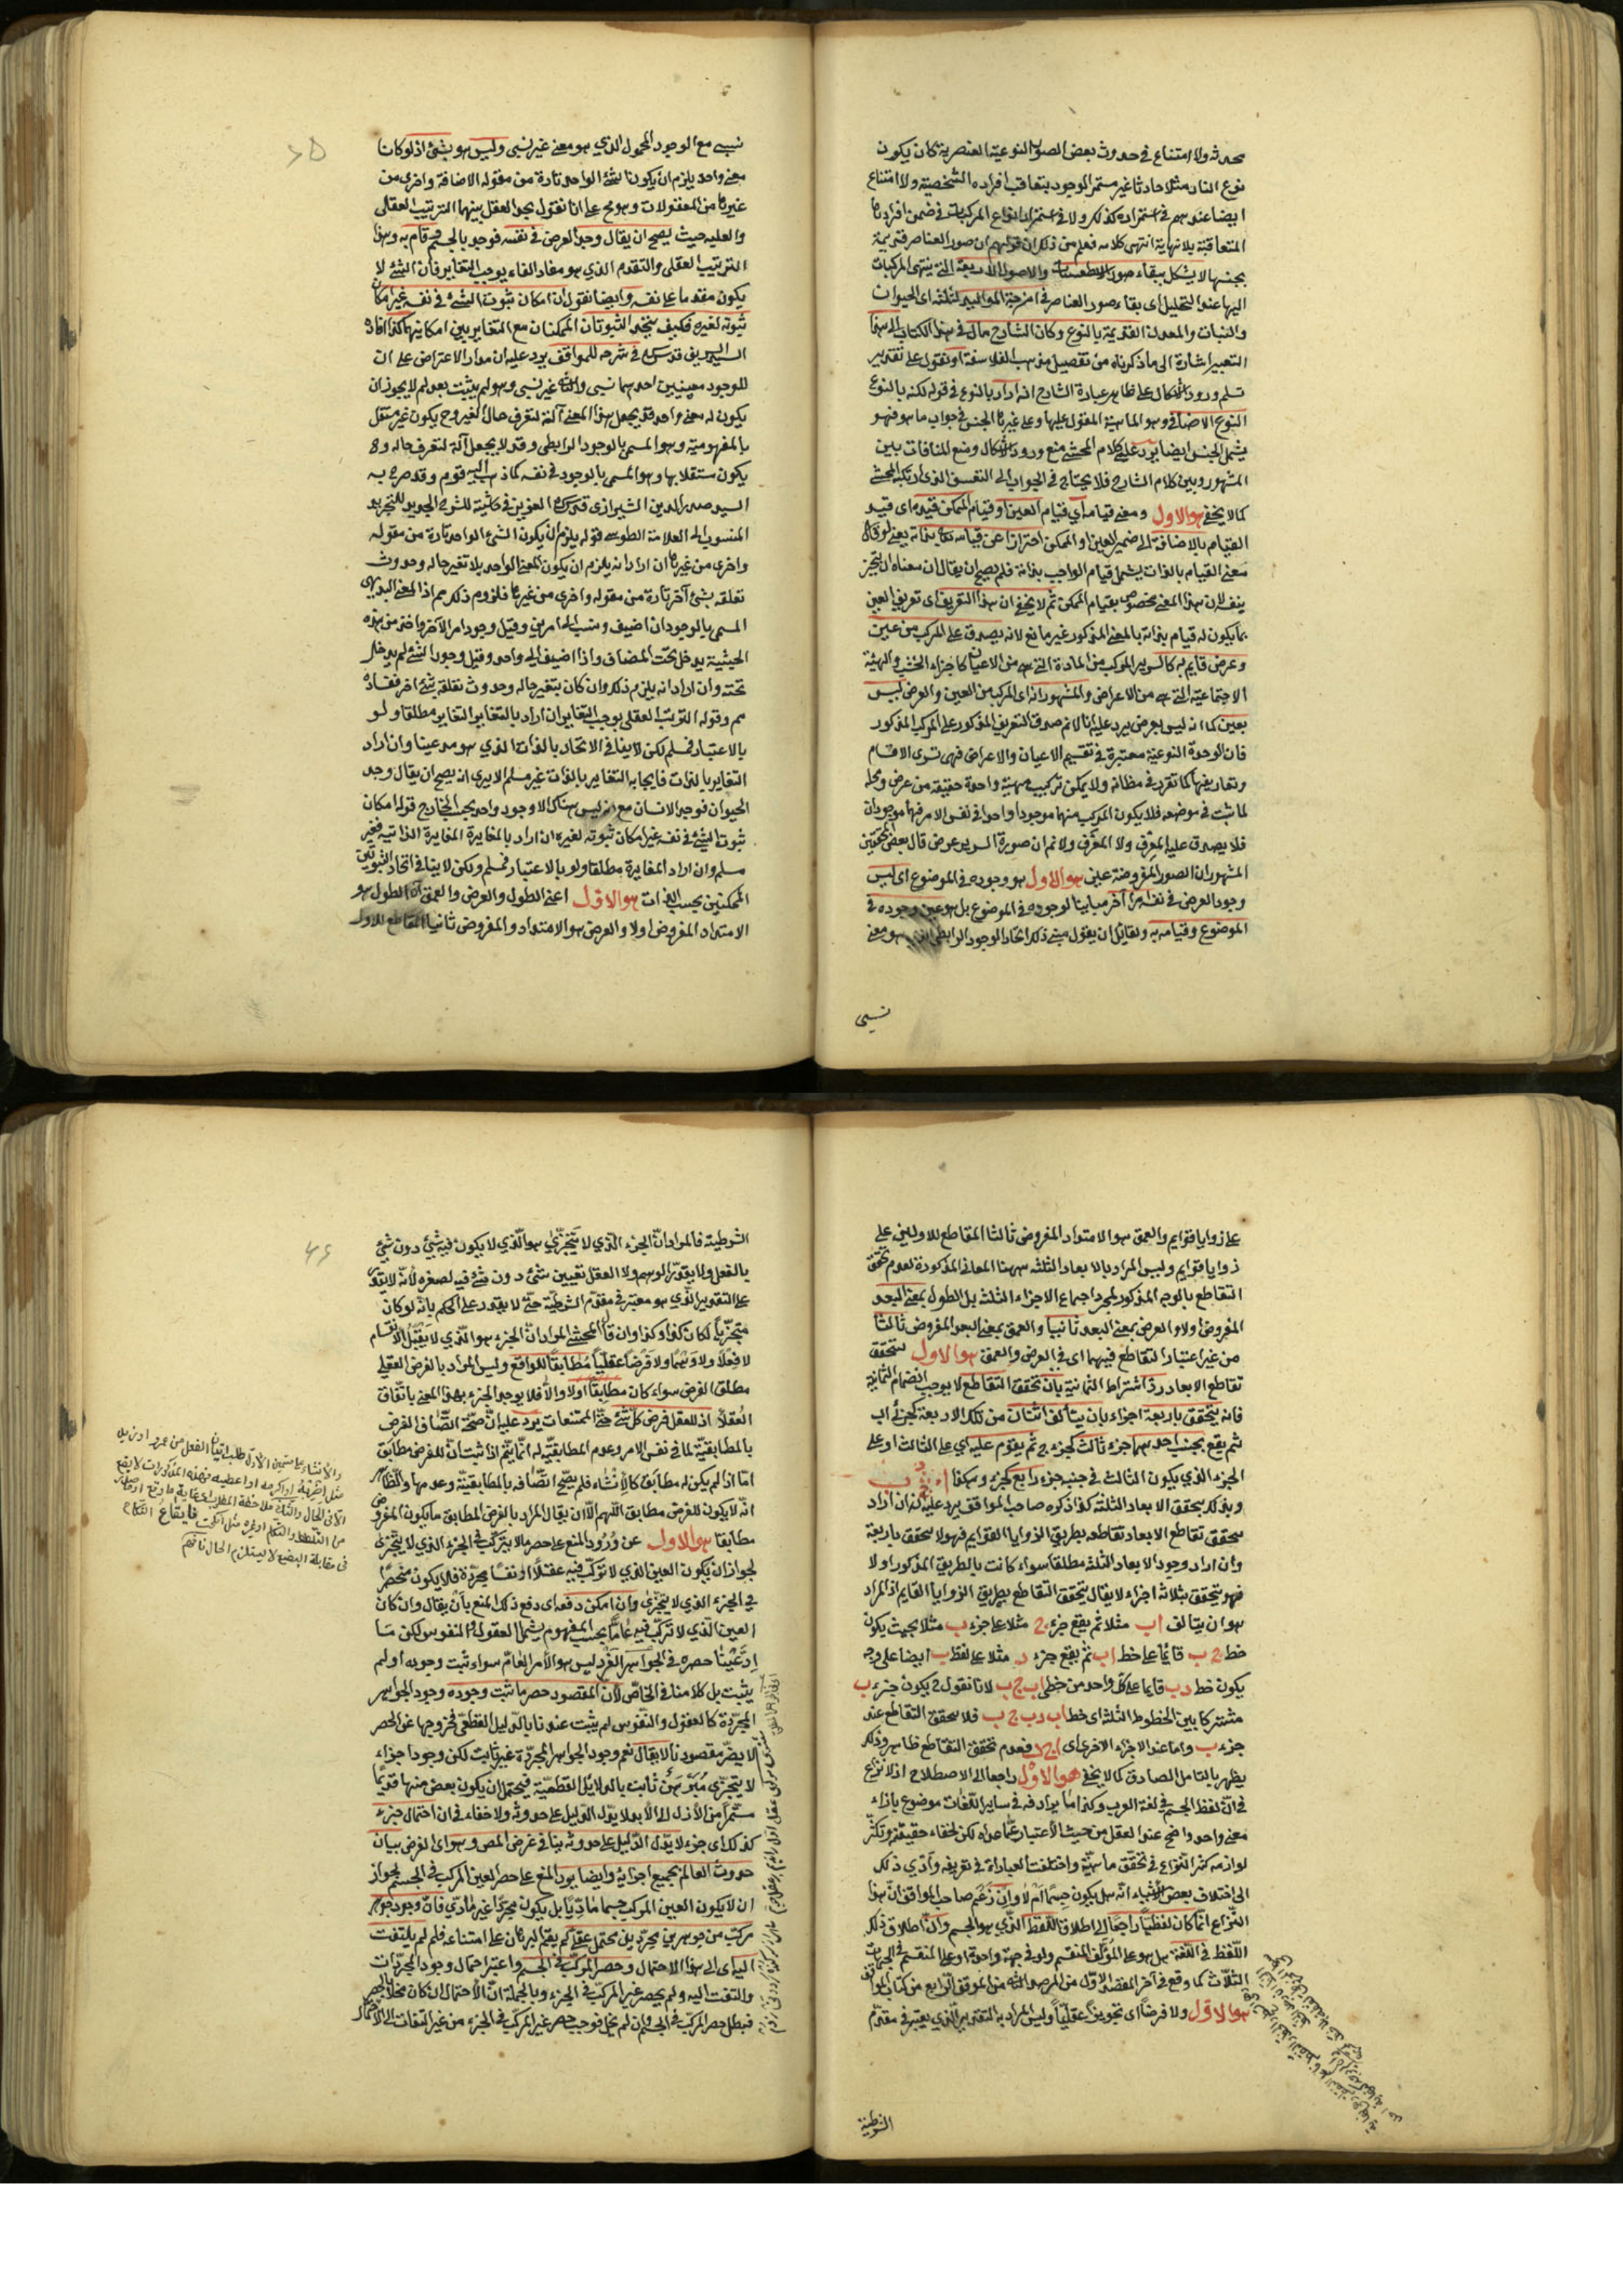 محدثة ولا امتناع فى حدوث بعض الصور النوعية العنصرية كان يكون
نوع النار مثلا حادثا غير مستمر الوجود بتعاقب افراده الشخصية ولا امتناع
ايضا عندهم فى استمراره كذلك ولا فى استمرار انواع المركبات فى ضمن افرادها
المتعاقبة بلا نهاية انتهى كلامه فعلم من ذلك ان قولهم ان صور العناصر قديمة
بجنسها لا يشكل ببقاء صور الاسطقسات والاصول الاربعة التى ينتهى المركبات
اليها عند التحليل اى بقاء صور العناصر فى امزجة المواليد الثلثة اى الحيوان
والنبات والمعدن القديمة بالنوع وكان الشارح مال فى هذا الكتاب الى هذا
التعبير اشارة الى ما ذكرناه من تفصيل مذهب الفلاسفة او نقول على تقدير
تسليم ورود الاشكال على ظاهر عبارة الشارح انه اراد بالنوع فى قوله لكنه بالنوع
النوع الاضافى وهو الماهية المقول عليها وعلى غيرها الجنس فى جواب ما هو فهو
يشمل الجنس ايضا يرد على كلام المحشى منع ورود الاشكال ومنع المنافات بين
المشهور وبين كلام الشارح فلا يحتاج فى الجواب الى التعسف الذى ارتكبه المحشى
كما لا يخفى هو الاول ومعنى قيامه اى قيام العين او قيام الممكن قيده اى قيد
القيام بالاضافة الى ضمير العين او الممكن احترازا عن قيامه تعالى بذاته يعنى لو كان
معنى القيام بالذات يشمل قيام الواجب بذاته فلم يصح ان يقال ان معناه ان يتحيز
بنفسه لان هذا المعنى مخصوص بقيام الممكن ثم لا يخفى ان هذا التعريف اى تعريف العين
بما يكون له قيام بذاته بالمعنى المذكور غير مانع لانه يصدق على المركب من عين
وعرض قايم به كالسرير المركب من المادة التى هى من الاعيان كاجزاء الخشب والهيئة
الاجتماعية التى هى من الاعراض والمشهور انه اى المركب من العين والعرض ليس
بعين كما انه ليس بعرض يرد عليه انا لا نم صدق التعريف المذكور على المركب المذكور
فان الوحدة النوعية معتبرة فى تقسيم الاعيان والاعراض فهى تسرى الاقسام
وتعاريفها كما تقرر فى مظانه ولا يمكن تركيب مهية واحدة حقيقة من عرض ومحله
لما ثبت فى موضعه فلا يكون المركب منهما موجودا واحدا فى نفس الامر فهما موجودان
فلا يصدق عليه المعرَّف ولا المعرِّف ولا نم ان صورة السرير عرض قال بعض المحققين
المشهور ان الصور المفروضة عين هو الاول هو وجوده فى الموضوع اى ليس
وجود العرض فى نفسه امرا آخر مباينا لوجوده فى الموضوع بل هو عين وجوده فى
الموضوع وقيامه به ولقائل ان يقول مبنى ذلك اتحاد الوجود الرابطى الذى هو معنى
نسبى
نسبى مع الوجود المحمول الذى هو معنى غير نسبى وليس هو بشئ اذ لو كانا
معنى واحد يلزم ان يكون الشئ الواحد تارة من مقولة الاضافة واخرى من
غيرها من المقولات وهو مح على انا نقول يجد العقل بينهما الترتيب العقلى
والعلية حيث يصح ان يقال وجد العرض فى نفسه فوجد بالجسم وقام به وهذا
الترتيب العقلى والتقدم الذى هو مفاد الفاء يوجب التغاير فان الشئ لا
يكون مقدما على نفسه وايضا نقول ان امكان ثبوت الشئ فى نفسه غير امكان
ثبوته لغيره فكيف يتحد الثبوتان الممكنان مع التغاير بين امكانيهما كذا افاده
السيد الشريف قدس سره فى شرحه للمواقف يرد عليه ان مدار الاعتراض على ان
للوجود معنيين احدهما نسبى والثانى غير نسبى وهو لم يثبت بعد لم لا يجوز ان
يكون له معنى واحد قد يجعل هذا المعنى آلة لتعرف حال الغير وح يكون غير مستقل
بالمفهومية وهو المسمى بالوجود الرابطى وقد لا يجعل آلة لتعرف حاله وح
يكون مستقلا بها وهو المسمى بالوجود فى نفسه كما ذهب اليه قوم وقد صرح به
السيد صدر الدين الشيرازى قدس سره العزيز فى حاشية للشرح الجديد للتجريد
المنسوب الى العلامة الطوسى قوله يلزم ان يكون الشئ الواحد تارة من مقولة
واخرى من غيرها ان اراد انه يلزم ان يكون المعنى الواحد بلا تغير حاله وحدوث
تعلقه بشئ آخر تارة من مقولة واخرى من غيرها فلزوم ذلك مم اذ المعنى البديهى
المسمى بالوجود ان اضيف ونسب الى امرين وقيل وجود امر لآخر واخذ من هذه
الحيثية يدخل تحت المضاف واذا اضيف الى واحد وقيل وجود الشئ لم يدخل
تحته وان اراد انه يلزم ذلك وان كان بتغير حاله وحدوث تعلقه بشئ آخر ففساده
مم وقوله الترتيب العقلى يوجب التغاير ان اراد بالتغاير التغاير مطلقا ولو
بالاعتبار فمسلم لكن لا ينافى الاتحاد بالذات الذى هو مدعينا وان اراد
التغاير بالذات فايجابه التغاير بالذات غير مسلم الا يرى انه يصح ان يقال وجد
الحيوان فوجد الانسان مع انه ليس هناك الا وجود واحد بحسب الخارج قوله امكان
ثبوت الشئ فى نفسه غير امكان ثبوته لغيره ان اراد بالمغايرة المغايرة الذاتية فغير
مسلم وان اراد المغايرة مطلقا ولو بالاعتبار فمسلم ولكن لا ينافى اتحاد الثبوتين
الممكنين بحسب الذات هو الاول اعنى الطول والعرض والعمق آه الطول هو
الامتداد المفروض اولا والعرض هو الامتداد المفروض ثانيا المقاطع للاول
على زوايا قوايم والعمق هو الامتداد المفروض ثالثا المقاطع للاولين على
زوايا قوايم وليس المراد بالابعاد الثلثة ههنا المعانى المذكورة لعدم تحقق
التقاطع بالوجه المذكور لمجرد اجتماع الاجزاء الثلثة بل الطول بمعنى البعد
المفروض اولا والعرض بمعنى البعد ثانيا والعمق بمعنى البعد المفروض ثالثا
من غير اعتبار التقاطع فيهما اى فى العرض والعمق هو الاول ليتحقق
تقاطع الابعاد رد اشتراط الثمانية بان تحقق التقاطع لا يوجب انضمام الثمانية
فانه يتحقق باربعة اجزاء بان يتألف اثنان من تلك الاربعة كجزئى اب
ثم يقع بجنب احدهما جزء ثالث كجزء ج ثم يقوم عليه اى على الثالث او على
الجزء الذى يكون الثالث فى جنبه جزء رابع كجزء د هكذا
وبذلك يتحقق الابعاد الثلثة كذا ذكره صاحب المواقف يرد عليه انه ان اراد
بتحقق تقاطع الابعاد تقاطعه بطريق الزوايا القوايم فهو لا يتحقق باربعة
وان اراد وجود الابعاد الثلثة مطلقا سواء كانت بالطريق المذكور او لا
فهو يتحقق بثلاثة اجزاء لا يقال يتحقق التقاطع بطريق الزوايا القايم اذ المراد
هو ان يتالف اب مثلا ثم يقع جزء ج مثلا على جزء ب مثلا بحيث يكون
خط ج ب قائما على خط اب ثم يقع جزء د مثلا على نقطة ب ايضا على وجه
يكون خط د ب قائما على كل واحد من خطى اب ج ب لانا نقول ح يكون جزء ب
مشتركا بين الخطوط الثلثة اى خط اب د ب ج ب فلا يتحقق التقاطع عند
جزء ب واما عند الاجزاء الاخرى اى اج د فعدم تحقق التقاطع ظاهر وذلك
يظهر بالتامل الصادق كما لا يخفى هو الاول راجعا الى الاصطلاح اذ لا نزاع
فى ان لفظ الجسم فى لغة العرب وكذا ما يرادفه فى ساير اللغات موضوع بازاء
معنى واحد واضح عند العقل من حيث الاعتبار عما عداه لكن لخفاء حقيقته وتكثر
لوازمه كثر النزاع فى تحقق ماهيته واختلفت العبارات فى تعريفه وادى ذلك
الى اختلاف بعض الاشياء انه هل يكون جسما ام لا وان زعم صاحب المواقف ان هذا
النزاع انما كان لفظيا راجعا الى اطلاق اللفظ الذى هو الجسم وان اطلاق ذلك
اللفظ فى اللغة هل هو على المؤلف المنقسم ولو فى جهة واحدة او على المنقسم فى الجهات
الثلاث كما وقع فى آخر المقصد الاول من المرصد الثانى من الموقف الرابع من كتاب المواقف
هو الاول ولا فرضا اى تجويزا عقليا وليس المراد به التقدير الذى يعتبر فى مقدم
الشرطية
الشرطية فالمراد ان الجزء الذى لا يتجزى هو الذى لا يكون فيه شئ دون شئ
بالفعل ولا يقدر الوهم ولا العقل تعيين شئ دون شئ فيه لصغره لانه لا يقدر
على التقدير الذى هو معتبر فى مقدم الشرطية حتى لا يقدر على الحكم بانه لو كان
متجزيا لكان كذا وكذا وان قال المحشى المراد ان الجزء هو الذى لا يقبل الانقسام
لا فعلا ولا وهما ولا فرضا عقليا مطابقا للواقع وليس المراد بالفرض العقلى
مطلق الفرض سواء كان مطابقا او لا والا فلا يوجد الجزء بهذا المعنى باتفاق
العقلاء اذ للعقل فرض كل شئ حتى الممتنعات يرد عليه ان صحة اتصاف الفرض
بالمطابقية لما فى نفس الامر وعدم المطابقية له انما يتم اذا ثبت ان للفرض مطابق
اما اذا لم يكن له مطابق كالانشاء فلم يصح اتصافه بالمطابقية وعدمها والظاهر
انه لا يكون للفرض مطابق اللهم الا ان يقال المراد بالفرض المطابق ما يكون المفروض
مطابقا هو الاول عن ورود المنع على حصر ما لا يتركب فى الجزء الذى لا يتجزى
لجواز ان يكون العين الذى لا تركب فيه عقلا او نفسا مجردة فلا يكون منحصرا
فى الجزء الذى لا يتجزى وان امكن دفعه اى دفع ذلك المنع بان يقال وان كان
العين الذى لا تركب فيه عاما بحسب المفهوم يشمل العقول والنفوس لكن ما
ادعينا حصره فى الجواهر الفرد ليس هو الامر العام سواء ثبت وجوده او لم
يثبت بل كلامنا فى الخاص لان المقصود حصر ما ثبت وجوده وجود الجواهر
المجردة كالعقول والنفوس لم يثبت عندنا بالدليل القطعى فخروجها عن الحصر
لا يضر مقصودنا لا يقال نعم وجود الجواهر المجردة غير ثابت لكن وجود اجزاء
لا يتجزى مبرهن ثابت بالدلايل القطعية فيحتمل ان يكون بعض منها قديما
مستمرا من الازل الى الابد لا يدل الدليل على حدوثه ولا خفاء فى ان احتمال جزء
كذلك اى جزء لا يدل الدليل على حدوثه ينافى غرض المص وهو اى الغرض بيان
حدوث العالم بجميع اجزائه وايضا يرد المنع على حصر العين المركب فى الجسم لجواز
ان لا يكون العين المركب جسما ماديا بل يكون مجردا غير مادى فان وجود جوهر
مركب من جوهرين مجردين محتمل عقلا لم يقم البرهان على امتناعه فلم لم يلتفت
اليه اى الى هذا الاحتمال وحصر المركب فى الجسم واعتبر احتمال وجود المجردات
والتفت اليه ولم يحصر غير المركب فى الجزء وبالجملة ان الاحتمال ان كان مخلا بالحصر
فبطل حصر المركب فى الجسم وان لم يخل فوجب حصر غير المركب فى الجزء من غير التفات الى الاحتمال
والانشاء على قسمين الاول طلب ايقاع الفعل من